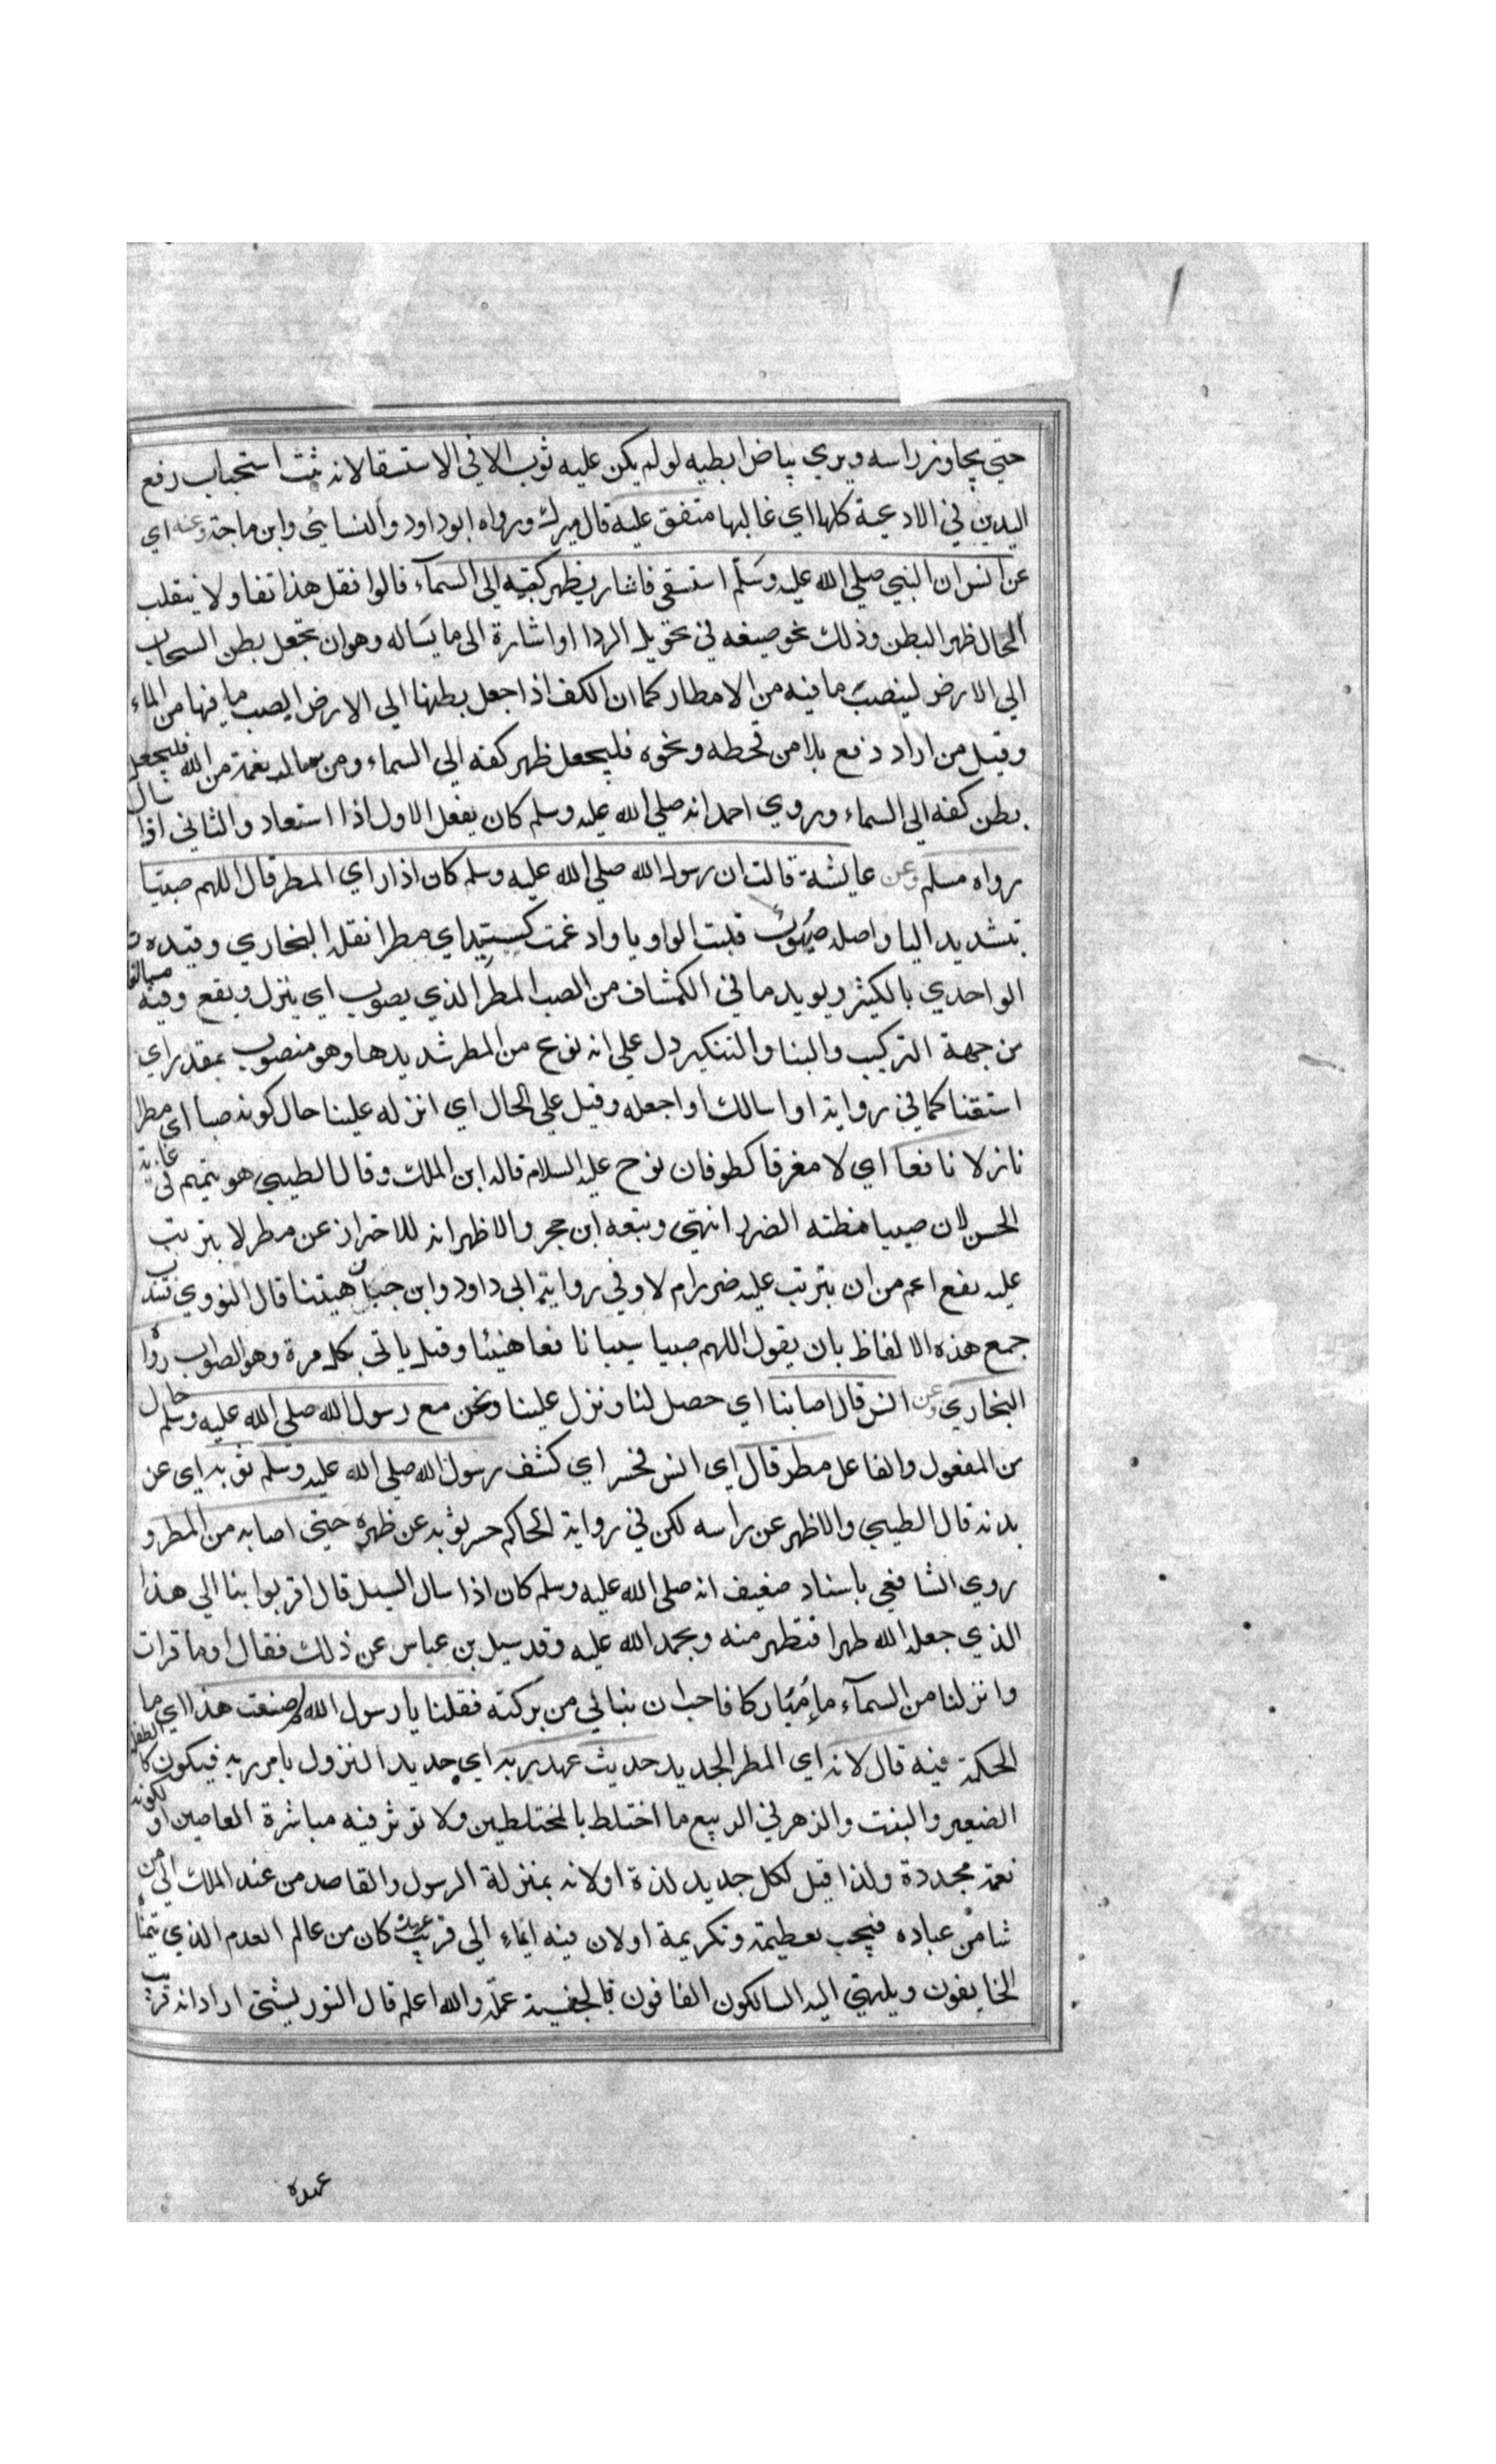 حتي يجاوز راسه ويري بياض ابطيه لو لم يكن عليه ثوب الا في الاستسقا لانه ثبت استحباب رفع
اليدين في الادعية كلها اي غالبها متفق عليه قال ميرك ورواه ابو داود والنسايي وابن ماجة وعنه اي
عن انس ان النبي صلي الله عليه وسلم استسقي فاشار بظهر كفيه الي السمآء قالوا فعل هذا تفاولا بتقلب
الحال ظهر البطن وذلك نحو صنيعه في تحويل الردا او اشارة الي ما يساله وهو ان يجعل بطن السحاب
الي الارض لينصب ما فيه من الامطار كما ان الكف اذا جعل بطنها الي الارض انصب ما فيها من الماء
وقيل من اراد دفع بلا من قحطه ونحوه فليجعل ظهر كفه الي السماء ومن سال نعمة من الله فليجعل
بطن كفه الي السماء وروي احمد انه صلي الله عليه وسلم كان يفعل الاول اذا استعاد والثاني اذا سال
رواه مسلم وعن عايشة قالت ان رسول الله صلي الله عليه وسلم كان اذا راي المطر قال اللهم صيبا
بتشديد اليا واصله صيوب قلبت الواو يا وادغمت كسيد اي مطرا نقله البخاري وقيده
الواحدي بالكثير ويويد ما في الكشاف من الصيب المطر الذي يصوب اي ينزل ويقع وفيه مبالغا
من جهة التركيب والبنا والتنكير دل علي انه نوع من المطر شديد هاو وهو منصوب بمقدر اي
استقنا كما في رواية او اسالك او اجعله وقيل علي الحال اي انزله علينا حال كونه صبا اي مطرا
نازلا نافعا اي لا مغرقا كطوفان نوح عليه السلام قاله ابن الملك وقال الطيبي هو تتميم في غاية
الحسن لان صيبا مظنه الضرر انتهي وتبعه ابن حجر والاظهر انه للاحتراز عن مطر لا يترتب
عليه نفع اعم من ان يترتب عليه ضرر ام لا وفي رواية ابي داود وابن حبان هنيئا قال النووي فيندب
جمع هذه الالفاظ بان يقول اللهم صيبا سيبا نافعا هنيئا وقيل ياتي بكل مرة وهو الصواب رواه
البخاري وعن انس قال اصابنا اي حصل لنا ونزل علينا ونحن مع رسول الله صلي الله عليه وسلم حال
من المفعول والفاعل مطر قال اي انس فحسر اي كشف رسول الله صلي الله عليه وسلم ثوبه اي عن
بدنه قال الطيبي والاظهر عن راسه لكن في رواية الحاكم حسر ثوبه عن ظهره حتي اصابه من المطر و
روي الشافعي باسناد ضعيف انه صلي الله عليه وسلم كان اذا سال السيل قال اخرجوا بنا الي هذا
الذي جعله الله طهرا فنتطهر منه ونحمد الله عليه وقد سيل بن عباس عن ذلك فقال اوما قرات
وانزلنا من السمآء مآء مباركا فاحب ان ينالني من بركته فقلنا يا رسول الله لم صنعت هذا اي ما
الحكمة فيه قال لانه اي المطر الجديد حديث عهد بربه اي جديد النزول بامر ربه فيكون كالطفل
الصغير والنبت والزهر في الربيع ما اختلط بالمختلطين ولا توثر فيه مباشرة العاصين او لكونه
نعمة مجددة ولذا قيل لكل جديد لذة او لانه بمنزلة الرسول والقاصد من عند الملك الي من
شامن عباده فيجب تعظيمه وتكريمه او لان فيه ايماء الي قرب عهده كان من عالم العدم الذي يتمناه
الخايفون وينتهي اليه السالكون الفانون والله اعلم قال التوربشتي اراد انه قريب
عهده